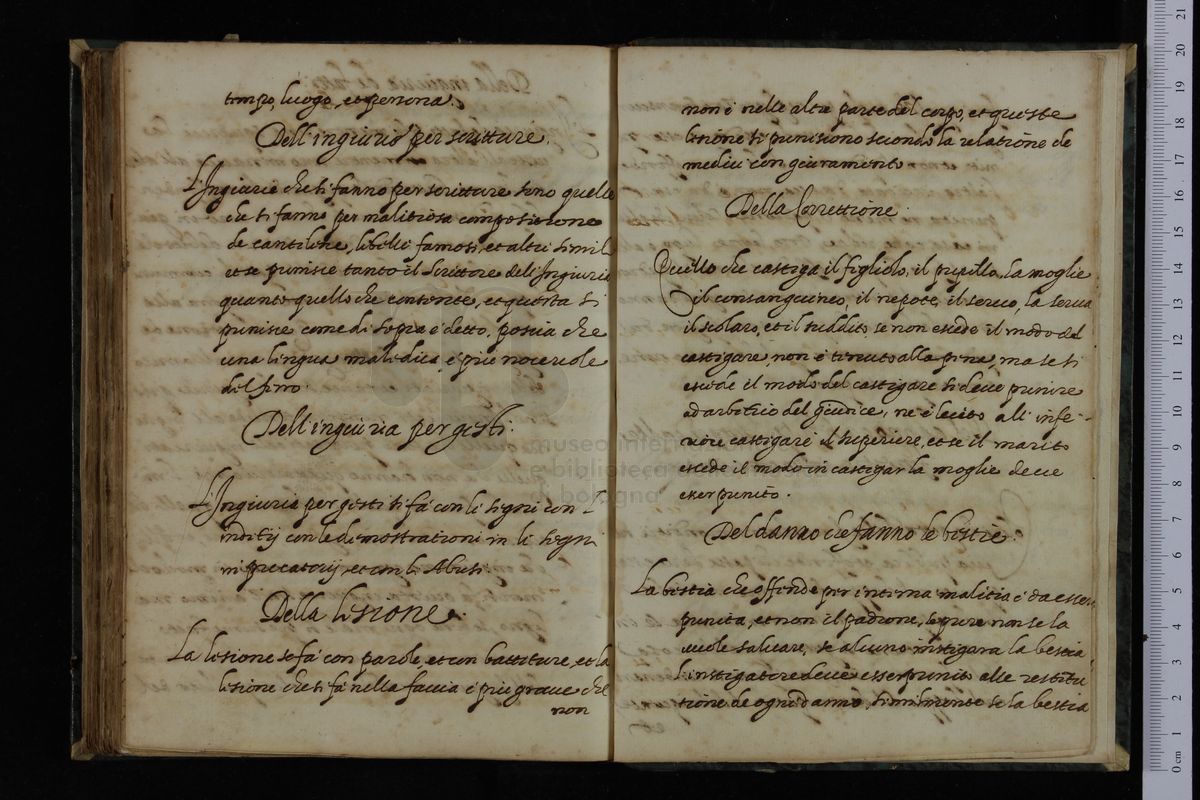 tempo, luogo, et persona.
Dell'ingiurie per scritture.
L'Ingiurie che si fanno per scritture sono quelle
che si fanno per malitiosa compositione
de cantilene, libelli famosi, et altri simili
et se punisce tanto il scrittore dell'Ingiuria
quanto quello che consente, et questa si
punisce come di sopra è detto, poscia che
una lingua maledica è più nocevole
del ferro.
Dell'ingiuria per gesti.
L'Ingiuria per gesti si fà con li signi con l
con le demostrationi in li segni
precatorij, et con li Abusi.
Della lesione.
La lesione se fà con parole, et con battiture, et la
lesione che si fà nella faccia è più grave che
non
non è nelle altre parte del corpo, et queste
lesione si puniscono secondo la relatione de
medici con giuramento
Della Correttione
Quello che castiga il figliolo, il pupillo, la moglie
il consanguineo, il nepote, il servo, la serva
il scolaro, et il suddito, se non excede il modo del
castigare, non è tenuto alla pena, ma se si
excede il modo del castigare si deve punire
ad arbitrio del giudice, ne è lecito a li infe-
riore castigare il superiore, et se il marito
excede il modo in castigar la moglie deve
esser punito.
Del danno che fanno le bestie.
La bestia che offende per interna malitia è da esser
punita, et non il padrone, se pure non se la
vuole salvare, se alcuno instigara la bestia,
l'instigatore deve esser punito alle restitu
tione de ogni danno, similmente se la bestia
museo inter
e biblioteca
di bologna